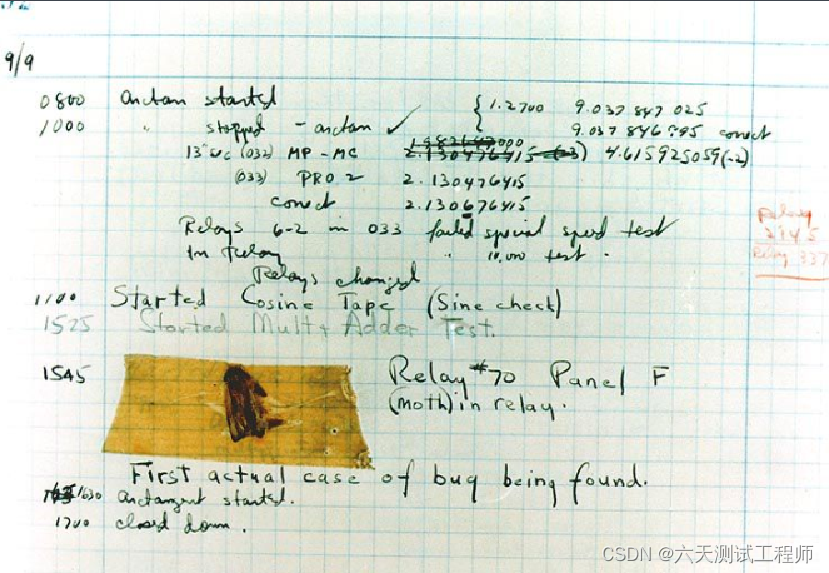 9/9
0800 Antan started
1000 " stopped - antan ✓ { 1.2700 9.037 847 025
9.037 846 795 conect
13"uc (032) MP - MC 2.130476415 4.615925059(-2)
(033) PRO 2 2.130476415
conect 2.130676415
Relays 6-2 in 033 failed special speed test
In Relay " 10,000 test .
Relay
2145
Relay 337
Relays changed
1100 Started Cosine Tape (Sine check)
1525 Started Mult+ Adder Test.
1545 Relay #70 Panel F
(moth) in relay.
First actual case of bug being found.
1630 antangent started.
1700 closed down .
CSDN @六天测试工程师